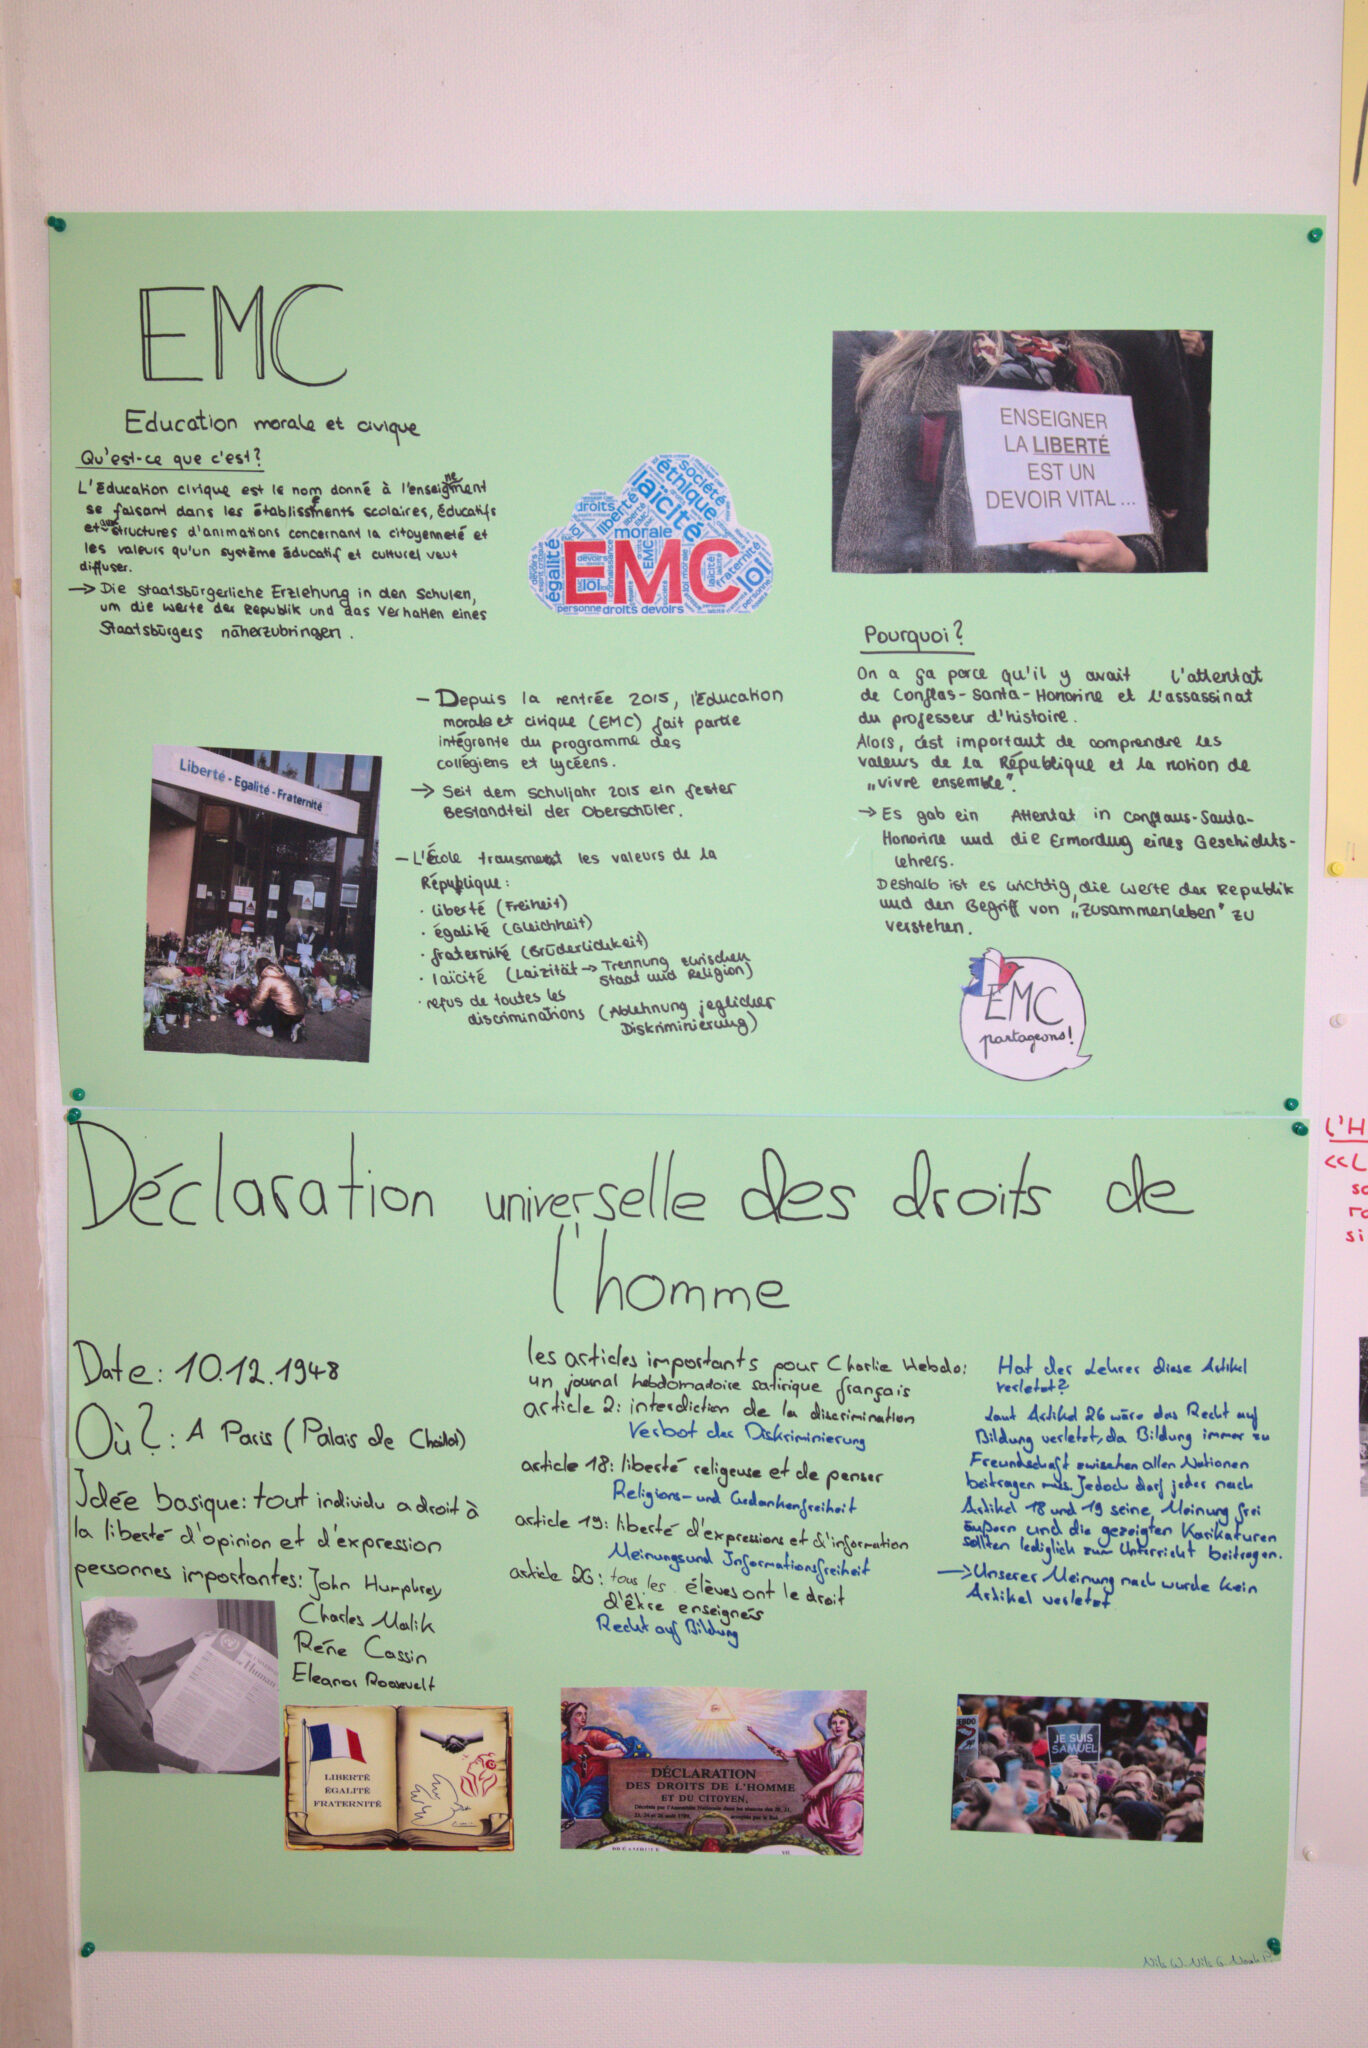 EMC
Education morale et civique
Qu'est-ce que c'est?
L'Éducation civique est le nom donné à l'enseignement
se faisant dans les établissments scolaires, éducatifs
et aux structures d'animations concernant la citoyenneté et
les valeurs qu'un système éducatif et culturel veut
diffuser.
→ Die staatsbürgerliche Erziehung in den Schulen,
um die Werte der Republik und das Verhalten eines
Staatsbürgers näherzubringen.
société
éthique
laïcité
droits
liberté
morale
égalité
EMC
loi
fraternité
personne droits devoirs
ENSEIGNER
LA LIBERTÉ
EST UN
DEVOIR VITAL ...
Liberté - Egalité - Fraternité
– Depuis la rentrée 2015, l'Éducation
morale et civique (EMC) fait partie
intégrante du programme des
collégiens et lycéens.
→ Seit dem Schuljahr 2015 ein fester
Bestandteil der Oberschüler.
– L'École transmet les valeurs de la
République:
· liberté (Freiheit)
· égalité (Gleichheit)
· fraternité (Brüderlichkeit)
· laïcité (Laizität → Trennung zwischen
Staat und Religion)
· refus de toutes les
discriminations (Ablehnung jeglicher
Diskriminierung)
Pourquoi?
On a ça parce qu'il y avait l'attentat
de Conflas-Santa-Honorine et l'assassinat
du professeur d'histoire.
Alors, c'est important de comprendre les
valeurs de la République et la notion de
„vivre ensemble".
→ Es gab ein Attentat in Conflans-Santa-
Honorine und die Ermordung eines Geschichts-
lehrers.
Deshalb ist es wichtig, die Werte der Republik
und den Begriff von „Zusammenleben" zu
verstehen.
EMC
partageons!
Déclaration universelle des droits de
l'homme
Date: 10.12.1948
Où?: A Paris (Palais de Chaillot)
Idée basique: tout individu a droit à
la liberté d'opinion et d'expression
personnes importantes: John Humphrey
Charles Malik
Réne Cassin
Eleanor Roosevelt
les articles importants pour Charlie Hebdo:
un journal hebdomadaire satirique français
article 2: interdiction de la discrimination
Verbot der Diskriminierung
article 18: liberté religeuse et de penser
Religions- und Gedankenfreiheit
article 19: liberté d'expressions et d'information
Meinungsund Informationsfreiheit
article 26: tous les élèves ont le droit
d'être enseignés
Recht auf Bildung
Hat der Lehrer diese Artikel
verletzt?
Laut Artikel 26 wäre das Recht auf
Bildung verletzt, da Bildung immer zu
Freundschaft zwischen allen Nationen
beitragen muss. Jedoch darf jeder nach
Artikel 18 und 19 seine Meinung frei
äußern und die gezeigten Karikaturen
sollten lediglich zum Unterricht beitragen.
→ Unserer Meinung nach wurde kein
Artikel verletzt
LIBERTÉ
ÉGALITÉ
FRATERNITÉ
DÉCLARATION
DES DROITS DE L'HOMME
ET DU CITOYEN,
JE SUIS
SAMUEL
L'H
<<L
si